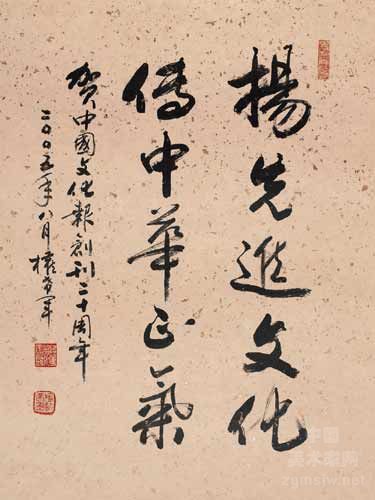 揚先進文化
傳中華正氣
賀中國文化報創刊二十周年
二〇〇五年八月權希軍
中国
美术家网
zgmsjw.net